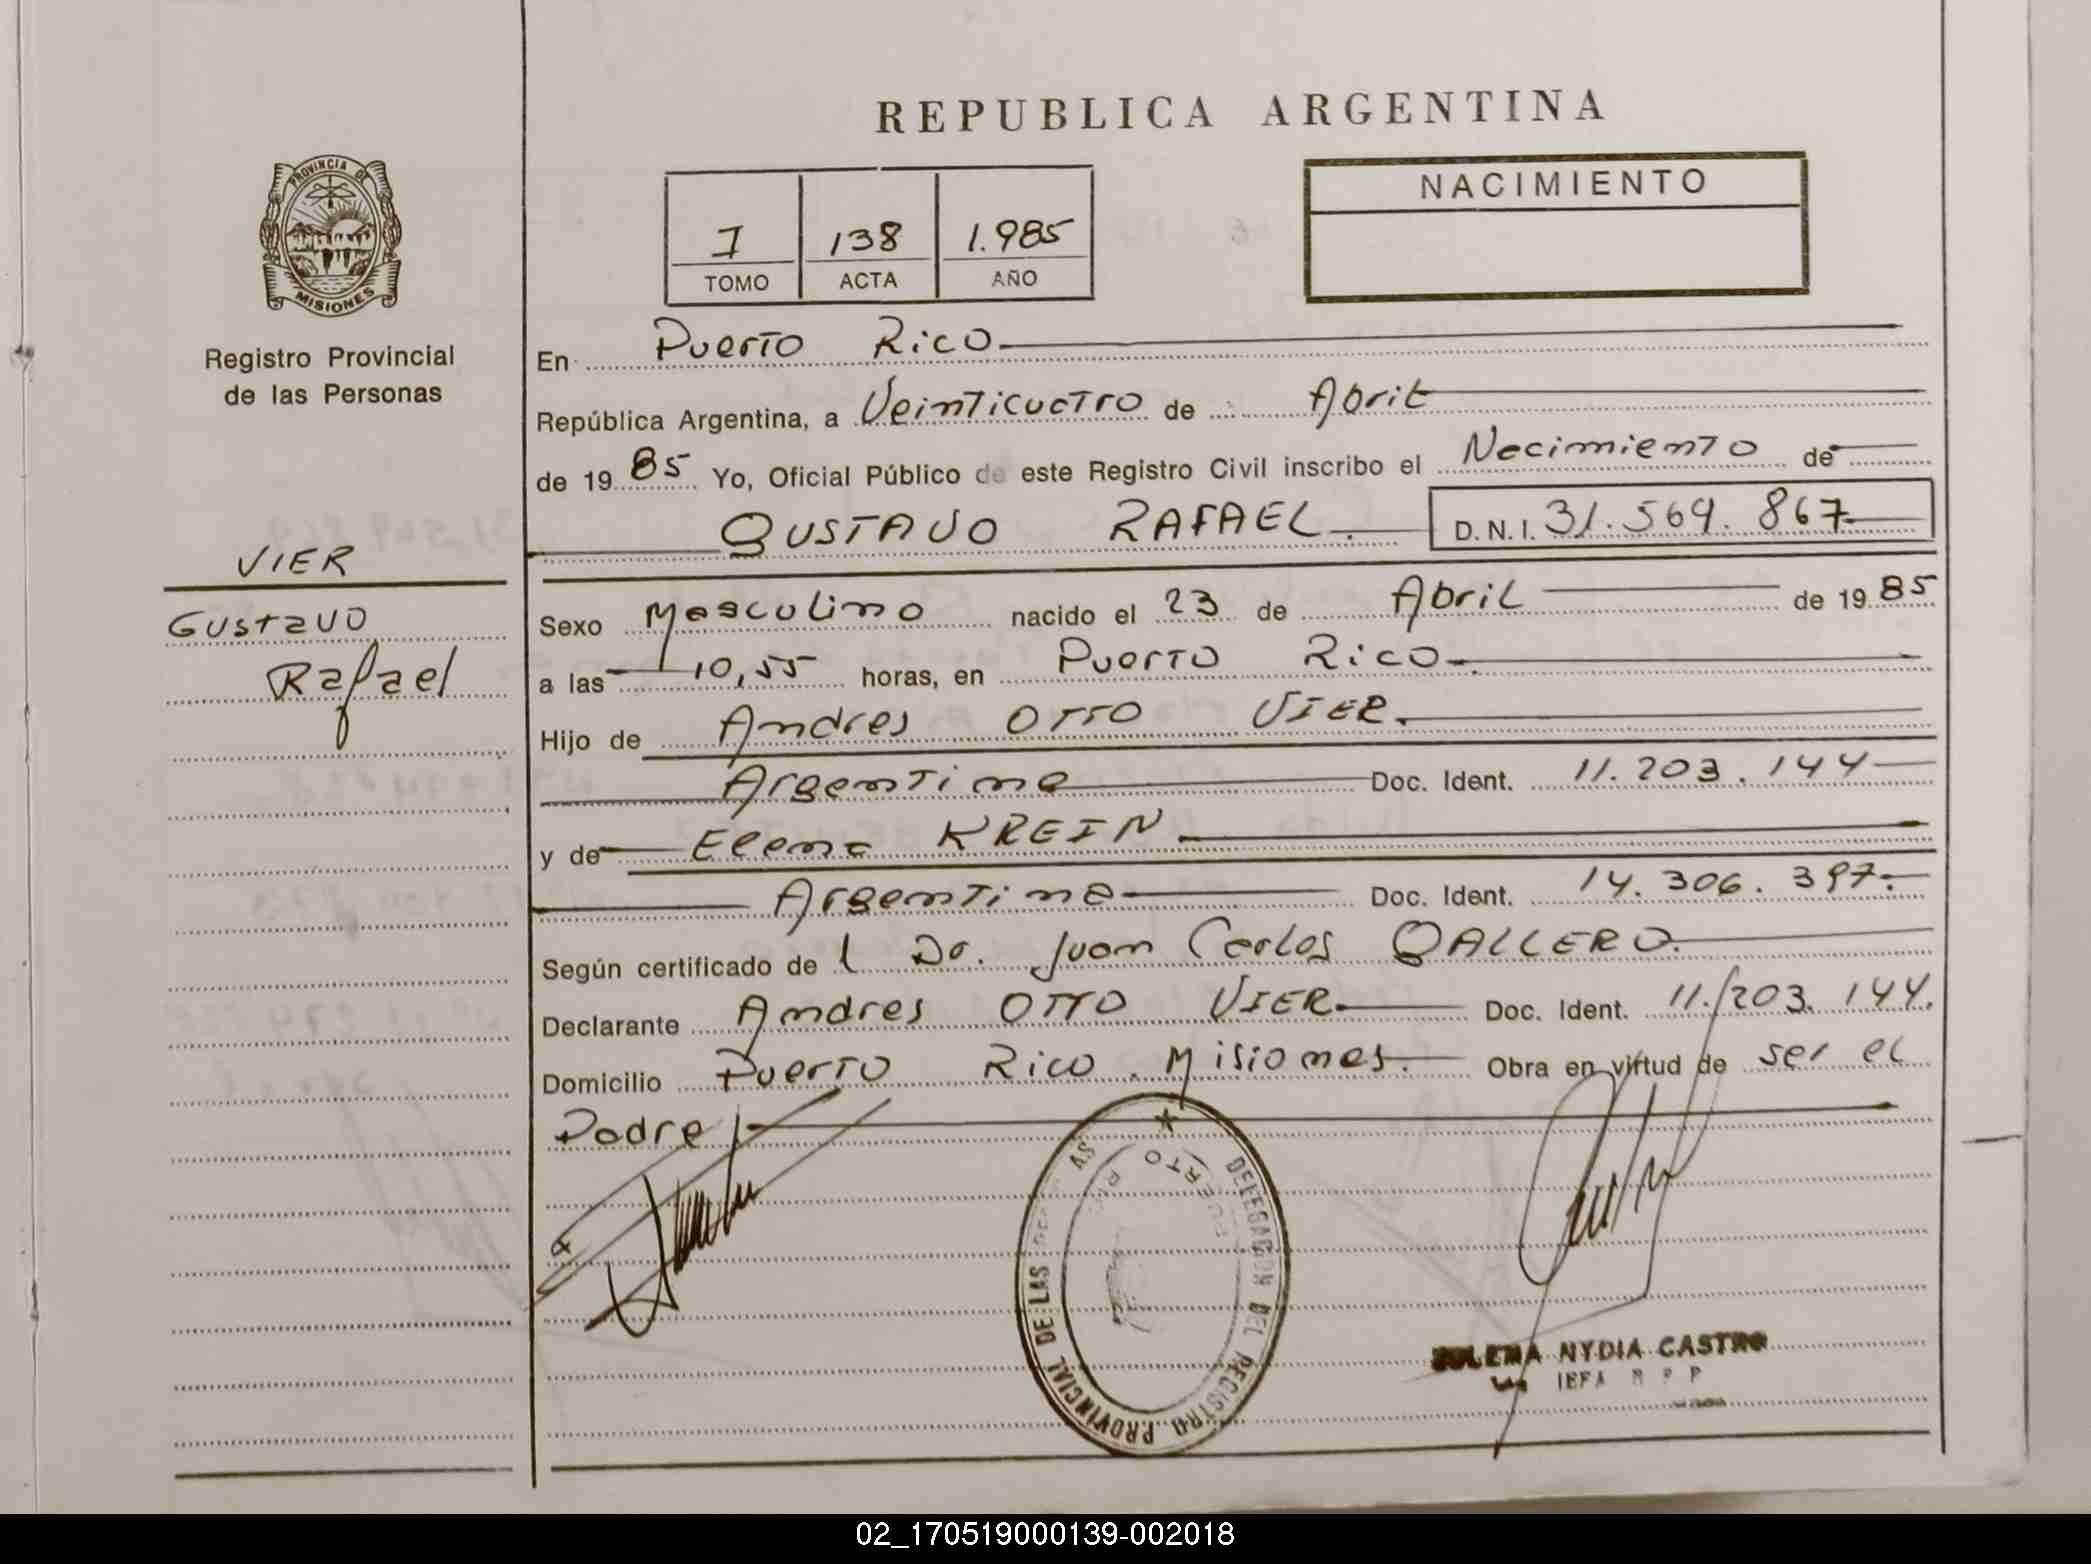 REPUBLICA ARGENTINA
PROVINCIA DE
MISIONES
Registro Provincial
de las Personas
I 138 1.985
TOMO ACTA AÑO
NACIMIENTO
En Puerto Rico
República Argentina, a Veinticuatro de Abril
de 19 85 Yo, Oficial Público de este Registro Civil inscribo el Nacimiento de
GUSTAVO RAFAEL. D.N.I. 31.569.867
VIER
Gustavo
Rafael
Sexo Masculino nacido el 23 de Abril de 19 85
a las 10,55 horas, en Puerto Rico.
Hijo de Andres Otto VIER.
Argentina Doc. Ident. 11.203.144
y de Elena KREIN
Argentina Doc. Ident. 14.306.397.
Según certificado de l Dr. Juan Carlos GALLERO.
Declarante Andres Otto VIER Doc. Ident. 11.203.144.
Domicilio Puerto Rico. Misiones. Obra en virtud de ser el
Padre
DELEGACION DEL REGISTRO PROVINCIAL DE LAS
PUERTO
NYDIA CASTRO
02_170519000139-002018